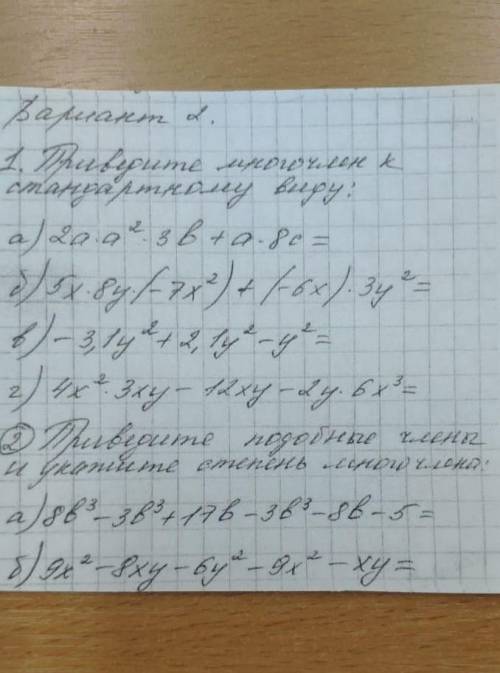 Вариант 2.
1. Приведите многочлен к
стандартному виду:
а) 2a·a²·3b + a·8c =
б) 5x·8y·(-7x²) + (-6x)·3y² =
в) -3,1y² + 2,1y² - y² =
г) 4x²·3xy - 12xy - 2y·6x³ =
② Приведите подобные члены
и укажите степень многочлена:
а) 8b³ - 3b³ + 17b - 3b³ - 8b - 5 =
б) 9x² - 8xy - 6y² - 9x² - xy =